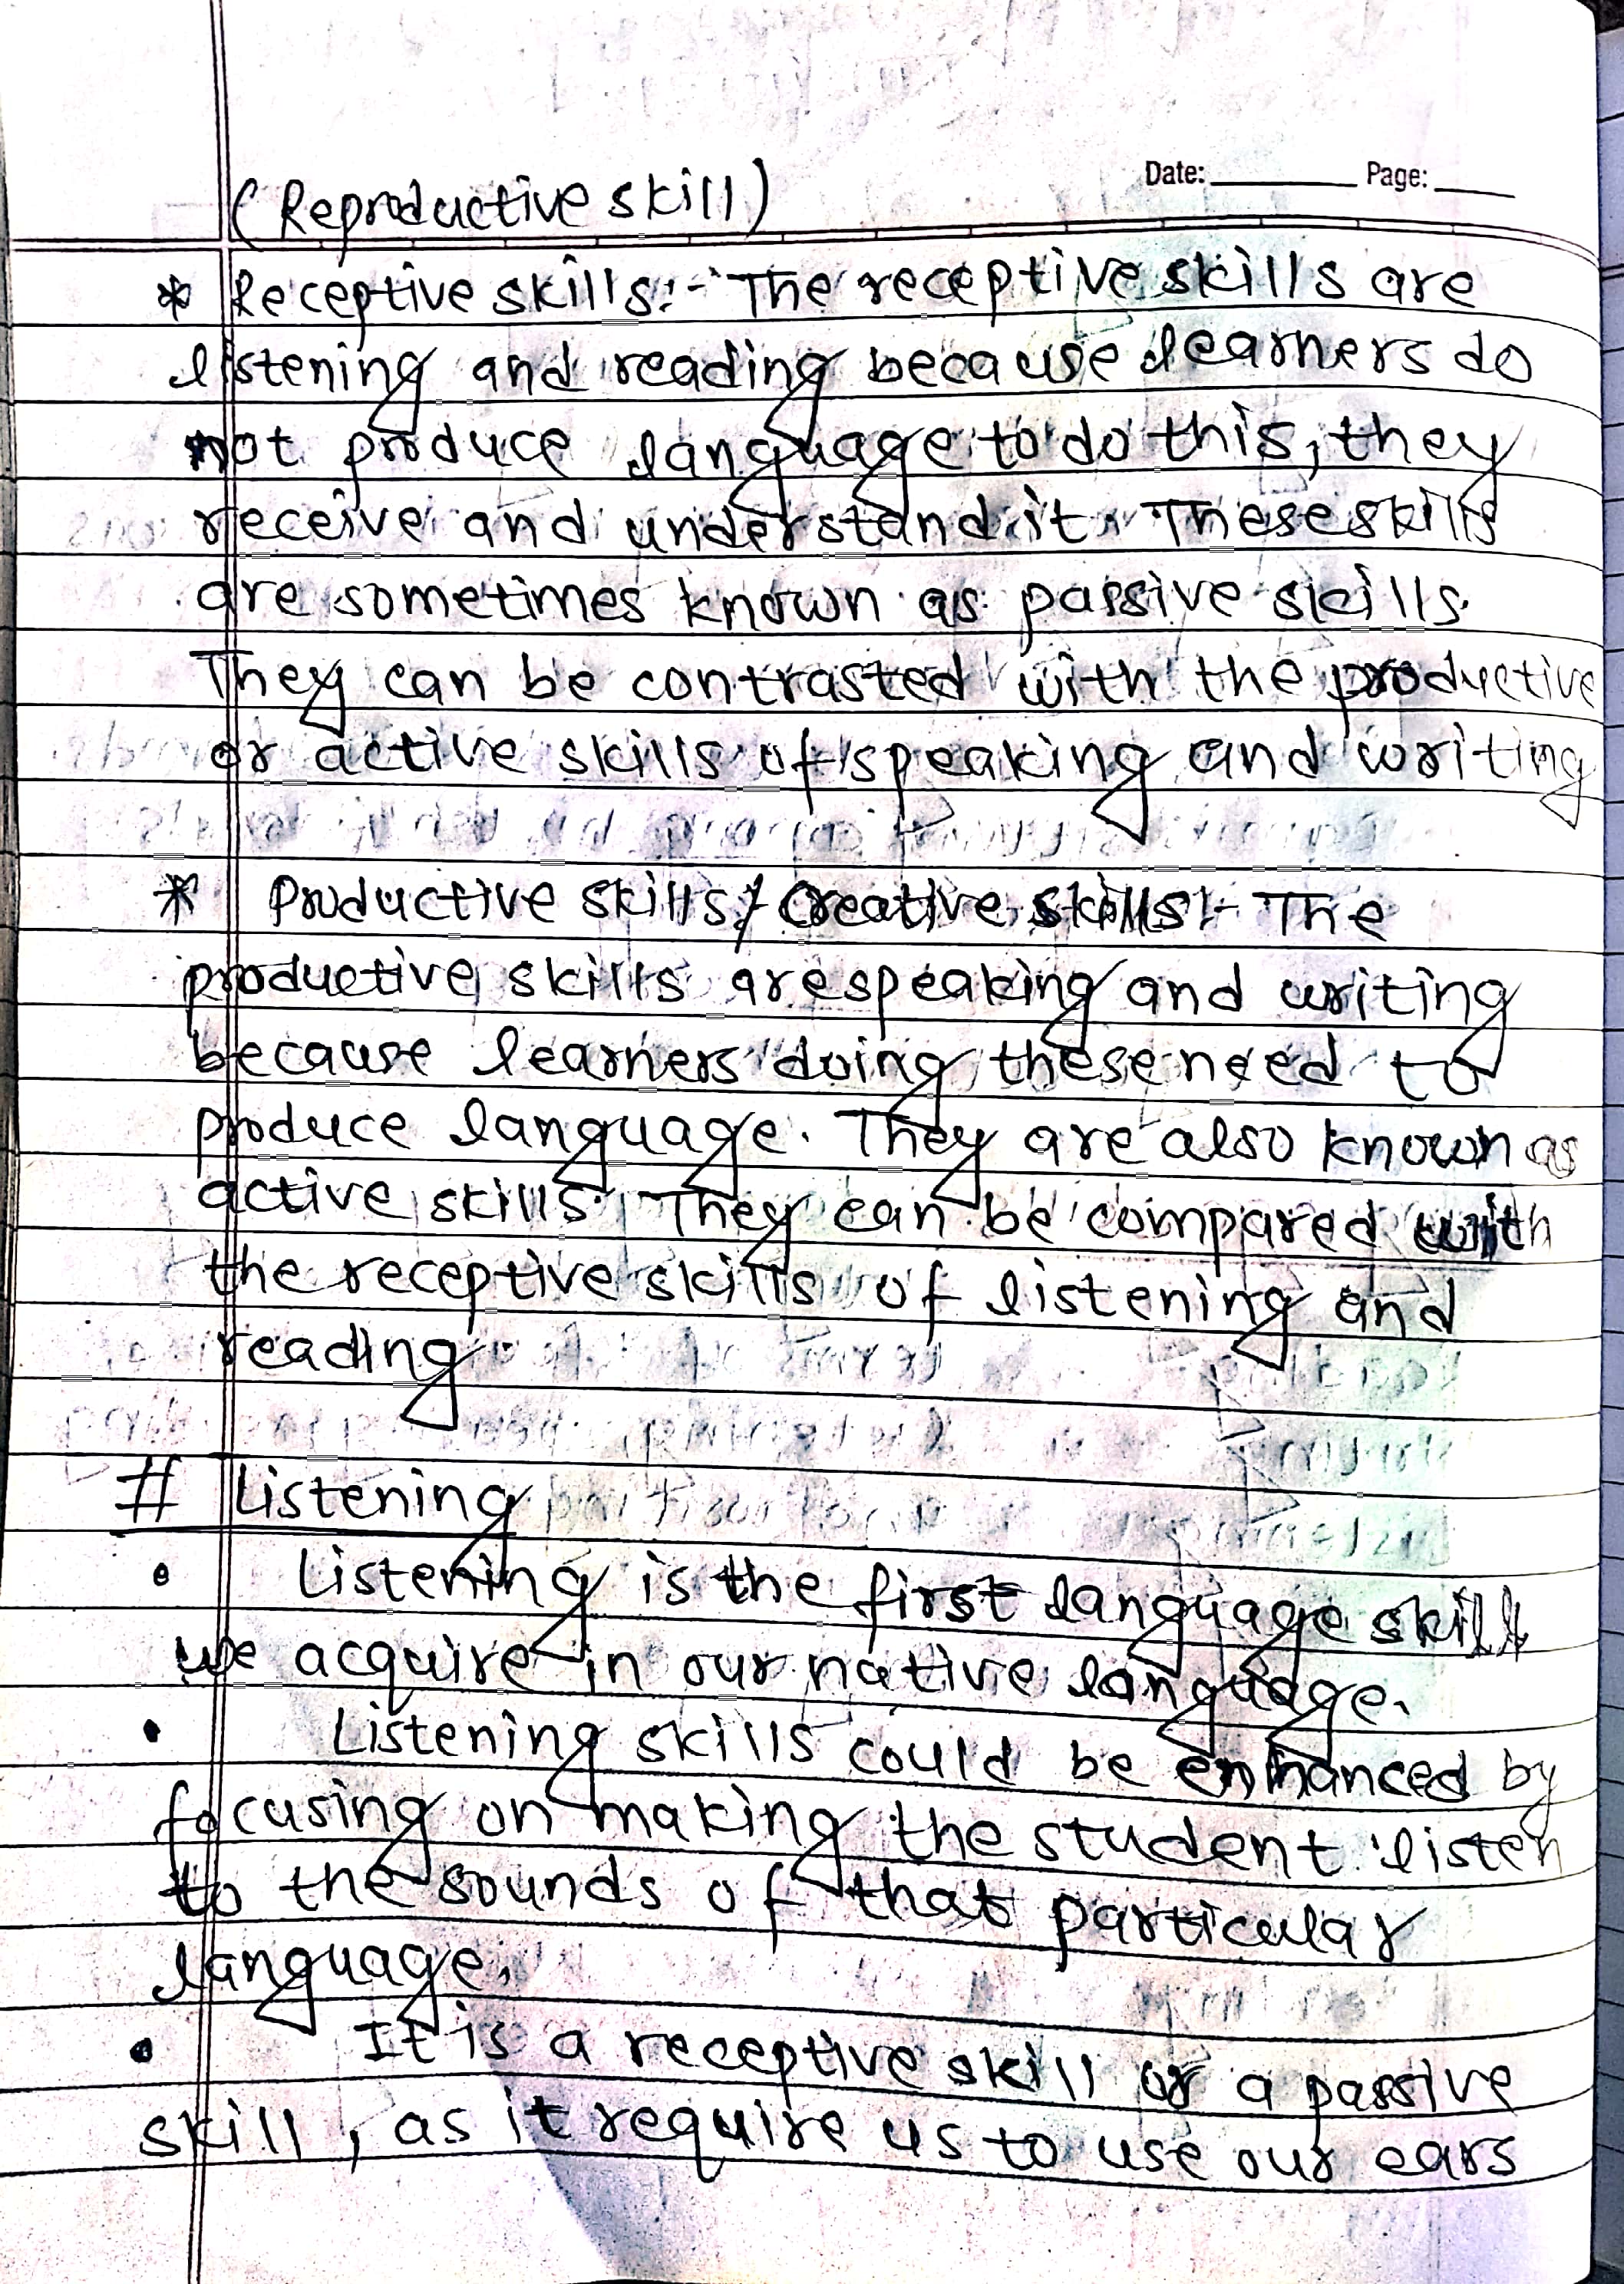 Date: Page:
(Reproductive skill)
* Receptive skills:- The receptive skills are
listening and reading because learners do
not produce language to do this, they
receive and understand it. These skills
are sometimes known as passive skills.
They can be contrasted with the productive
or active skills of speaking and writing
* Productive skills / Creative skills:- The
productive skills are speaking and writing
because learners doing these need to
produce language. They are also known as
active skills. They can be compared with
the receptive skills of listening and
reading.
# Listening
• Listening is the first language skill
we acquire in our native language.
• Listening skills could be enhanced by
focusing on making the student listen
to the sounds of that particular
language.
• It is a receptive skill or a passive
skill, as it require us to use our ears